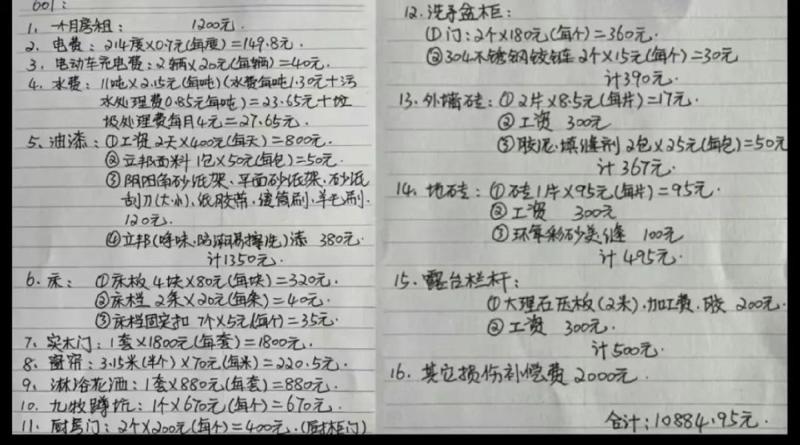 601:
1. 一个月房租: 1200元.
2. 电费: 214度×0.7元(每度)=149.8元.
3. 电动车充电费: 2辆×20元(每辆)=40元.
4. 水费: 11吨×2.15元(每吨)(水费每吨1.30元+污
水处理费0.85元每吨)=23.65元+垃
圾处理费每月4元=27.65元.
5. 油漆: ①工资2天×400元(每天)=800元.
②立邦面料 1包×50元(每包)=50元.
③阴阳角砂纸架、平面砂纸架、砂纸
刮刀(大小)、纸胶带、滚筒刷、羊毛刷.
120元.
④立邦(净味、防霉易擦洗)漆 380元.
计1350元.
6. 床: ①床板 4块×80元(每块)=320元.
②床档 2条×20元(每条)=40元.
③床档固定扣 7个×5元(每个)=35元.
7. 实木门: 1套×1800元(每套)=1800元.
8. 窗帘: 3.15米(半个)×70元(每米)=220.5元.
9. 淋浴花洒: 1套×880元(每套)=880元.
10. 九牧蹲坑: 1个×670元(每个)=670元.
11. 厨房门: 2个×200元(每个)=400元.(厨柜门)
12. 洗手盆柜:
①门: 2个×180元(每个)=360元.
②304不锈钢铰链 2个×15元(每个)=30元
计390元.
13. 外墙砖: ①2片×8.5元(每片)=17元.
②工资 300元
③胶泥、填缝剂 2包×25元(每包)=50元
计367元.
14. 地砖: ①砖1片×95元(每片)=95元.
②工资 300元
③环氧彩砂美缝 100元
计495元.
15. 露台栏杆:
①大理石压板(2米)、加工费、胶 200元.
②工资 300元.
计500元.
16. 其它损伤补偿费2000元.
合计: 10884.95元.